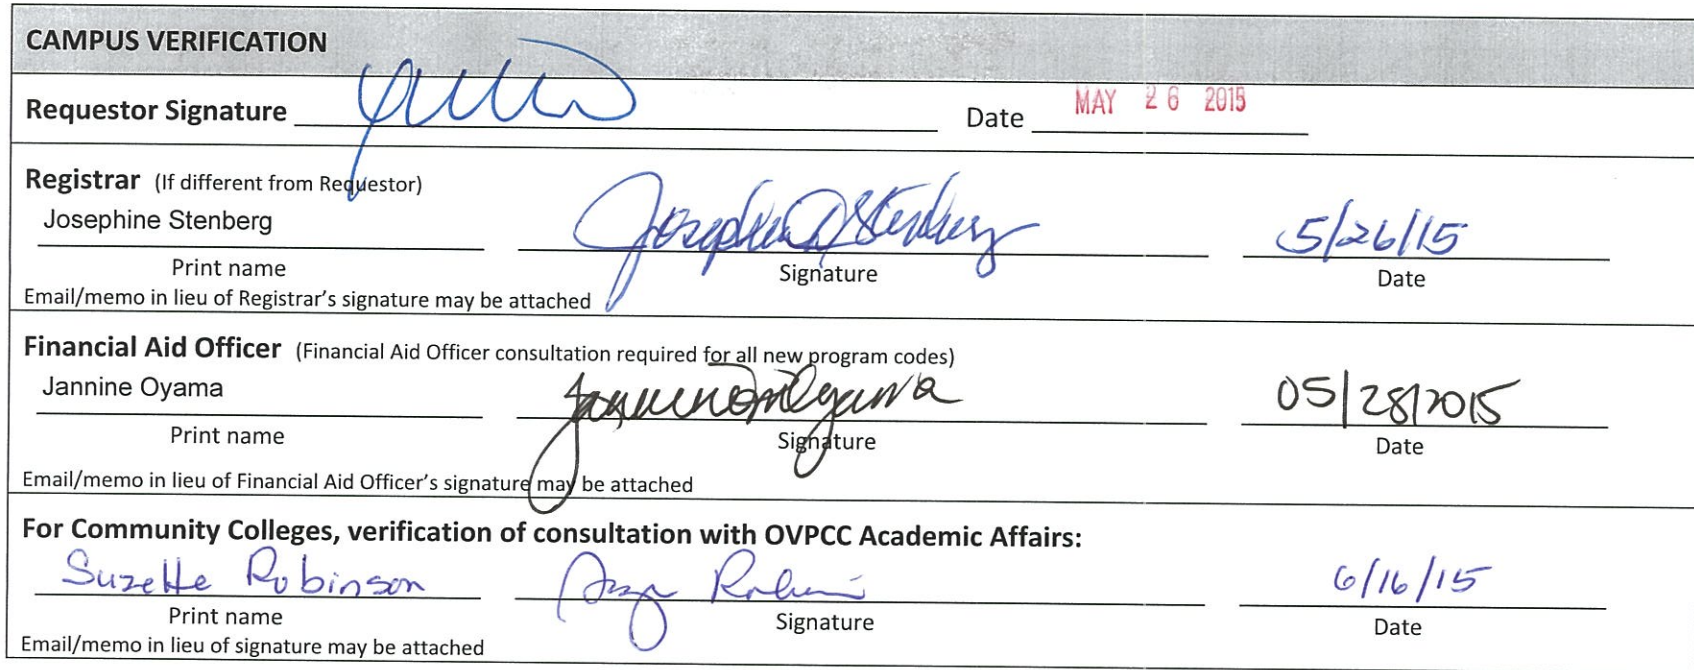 CAMPUS VERIFICATION
Requestor Signature Date MAY 26 2015
Registrar (If different from Requestor)
Josephine Stenberg Josephine Stenberg 5/26/15
Print name Signature Date
Email/memo in lieu of Registrar's signature may be attached
Financial Aid Officer (Financial Aid Officer consultation required for all new program codes)
Jannine Oyama Oyama 05/28/2015
Print name Signature Date
Email/memo in lieu of Financial Aid Officer's signature may be attached
For Community Colleges, verification of consultation with OVPCC Academic Affairs:
Suzette Robinson 6/16/15
Print name Signature Date
Email/memo in lieu of signature may be attached